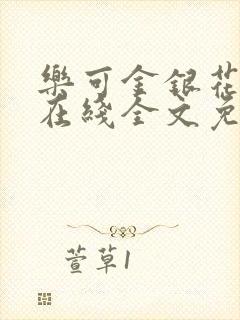 樂可金銀花
在綫全文免
萱草1